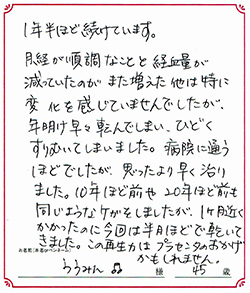 1年半ほど続けています。
月経が順調なことと経血量が
減っていたのがまた増えた他は特に
変化を感じていませんでしたが、
年明け早々転んでしまい、ひどく
すりむいてしまいました。病院に通う
ほどでしたが、思ったより早く治り
ました。10年ほど前や20年ほど前も
同じようなケガをしましたが、1ヶ月近く
かかったのに今回は半月ほどで乾いて
きました。この再生力はプラセンタのおかげ
お名前(本名orペンネーム)
かもしれません。
ううみん♫ 様 45 歳